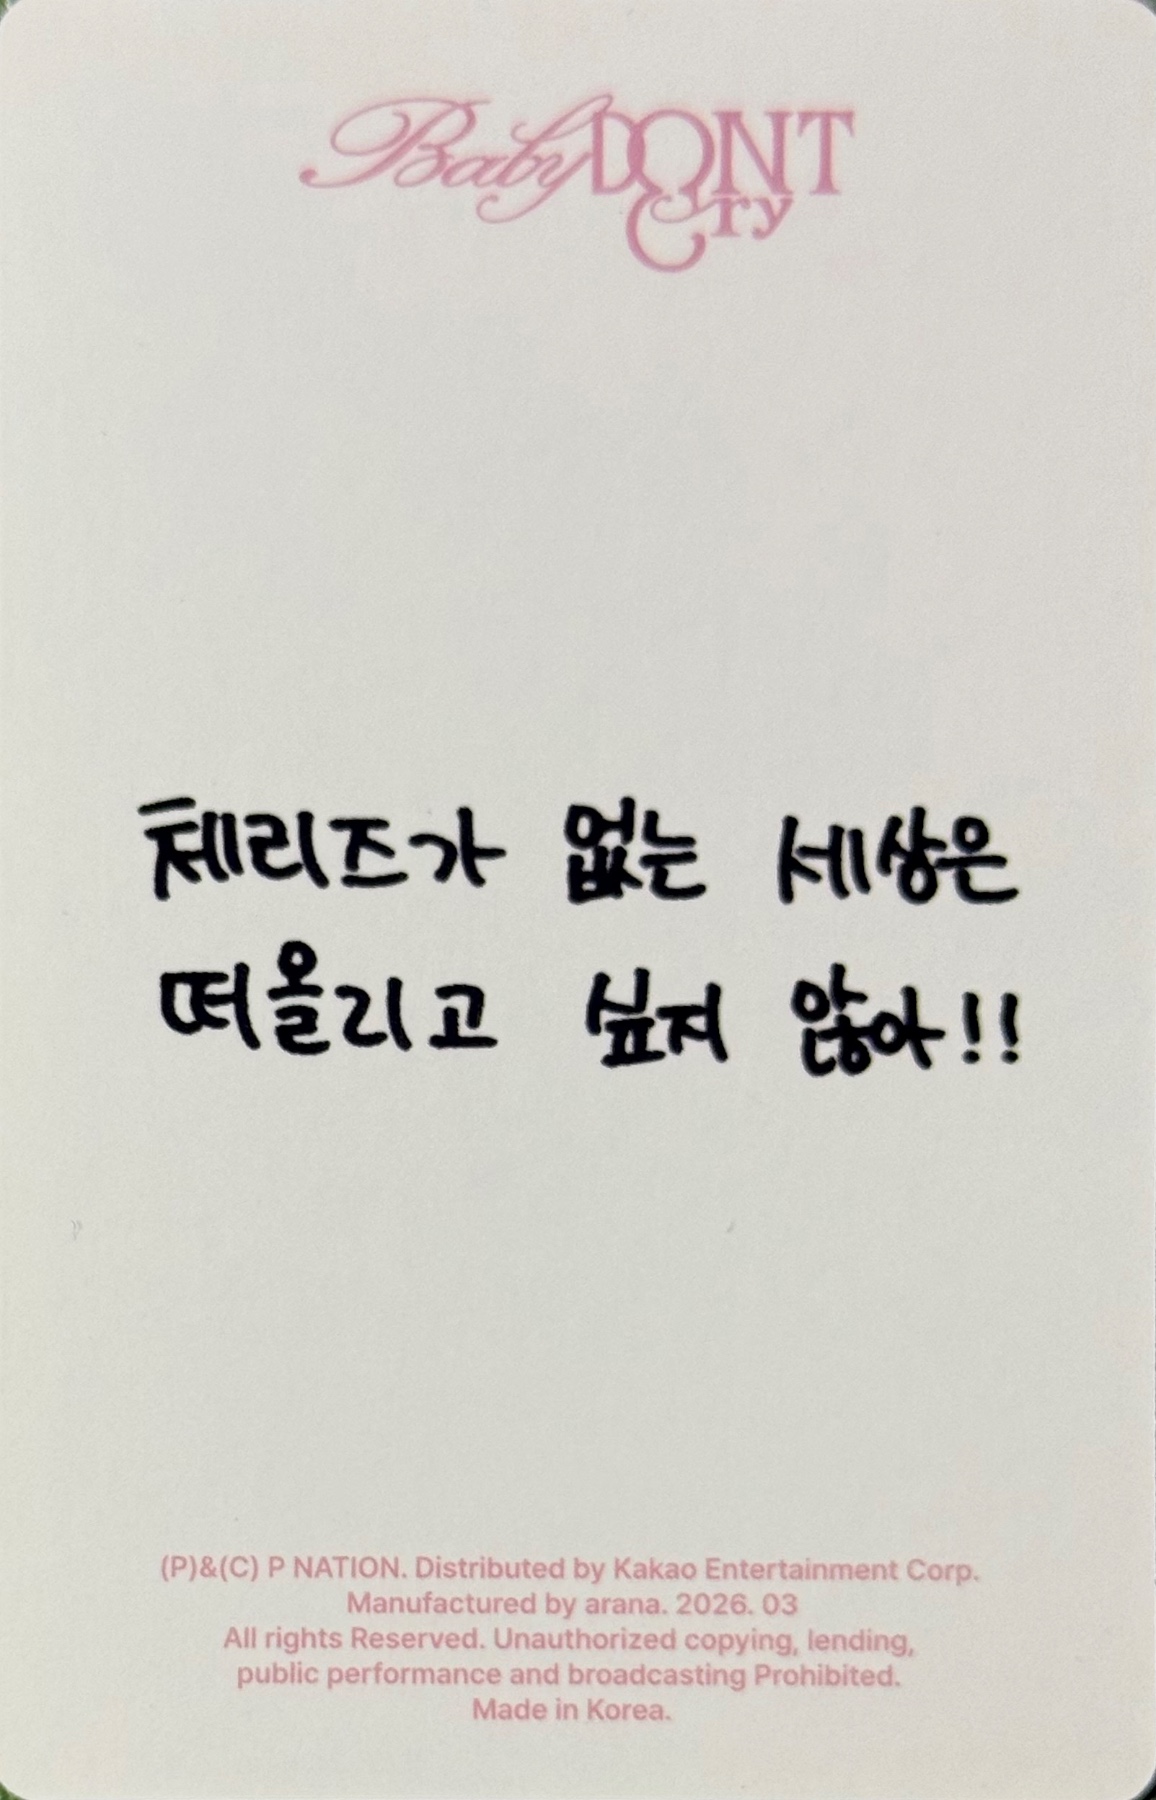 Baby DONT Cry
체리즈가 없는 세상은
떠올리고 싶지 않아!!
(P)&(C) P NATION. Distributed by Kakao Entertainment Corp.
Manufactured by arana. 2026. 03
All rights Reserved. Unauthorized copying, lending,
public performance and broadcasting Prohibited.
Made in Korea.